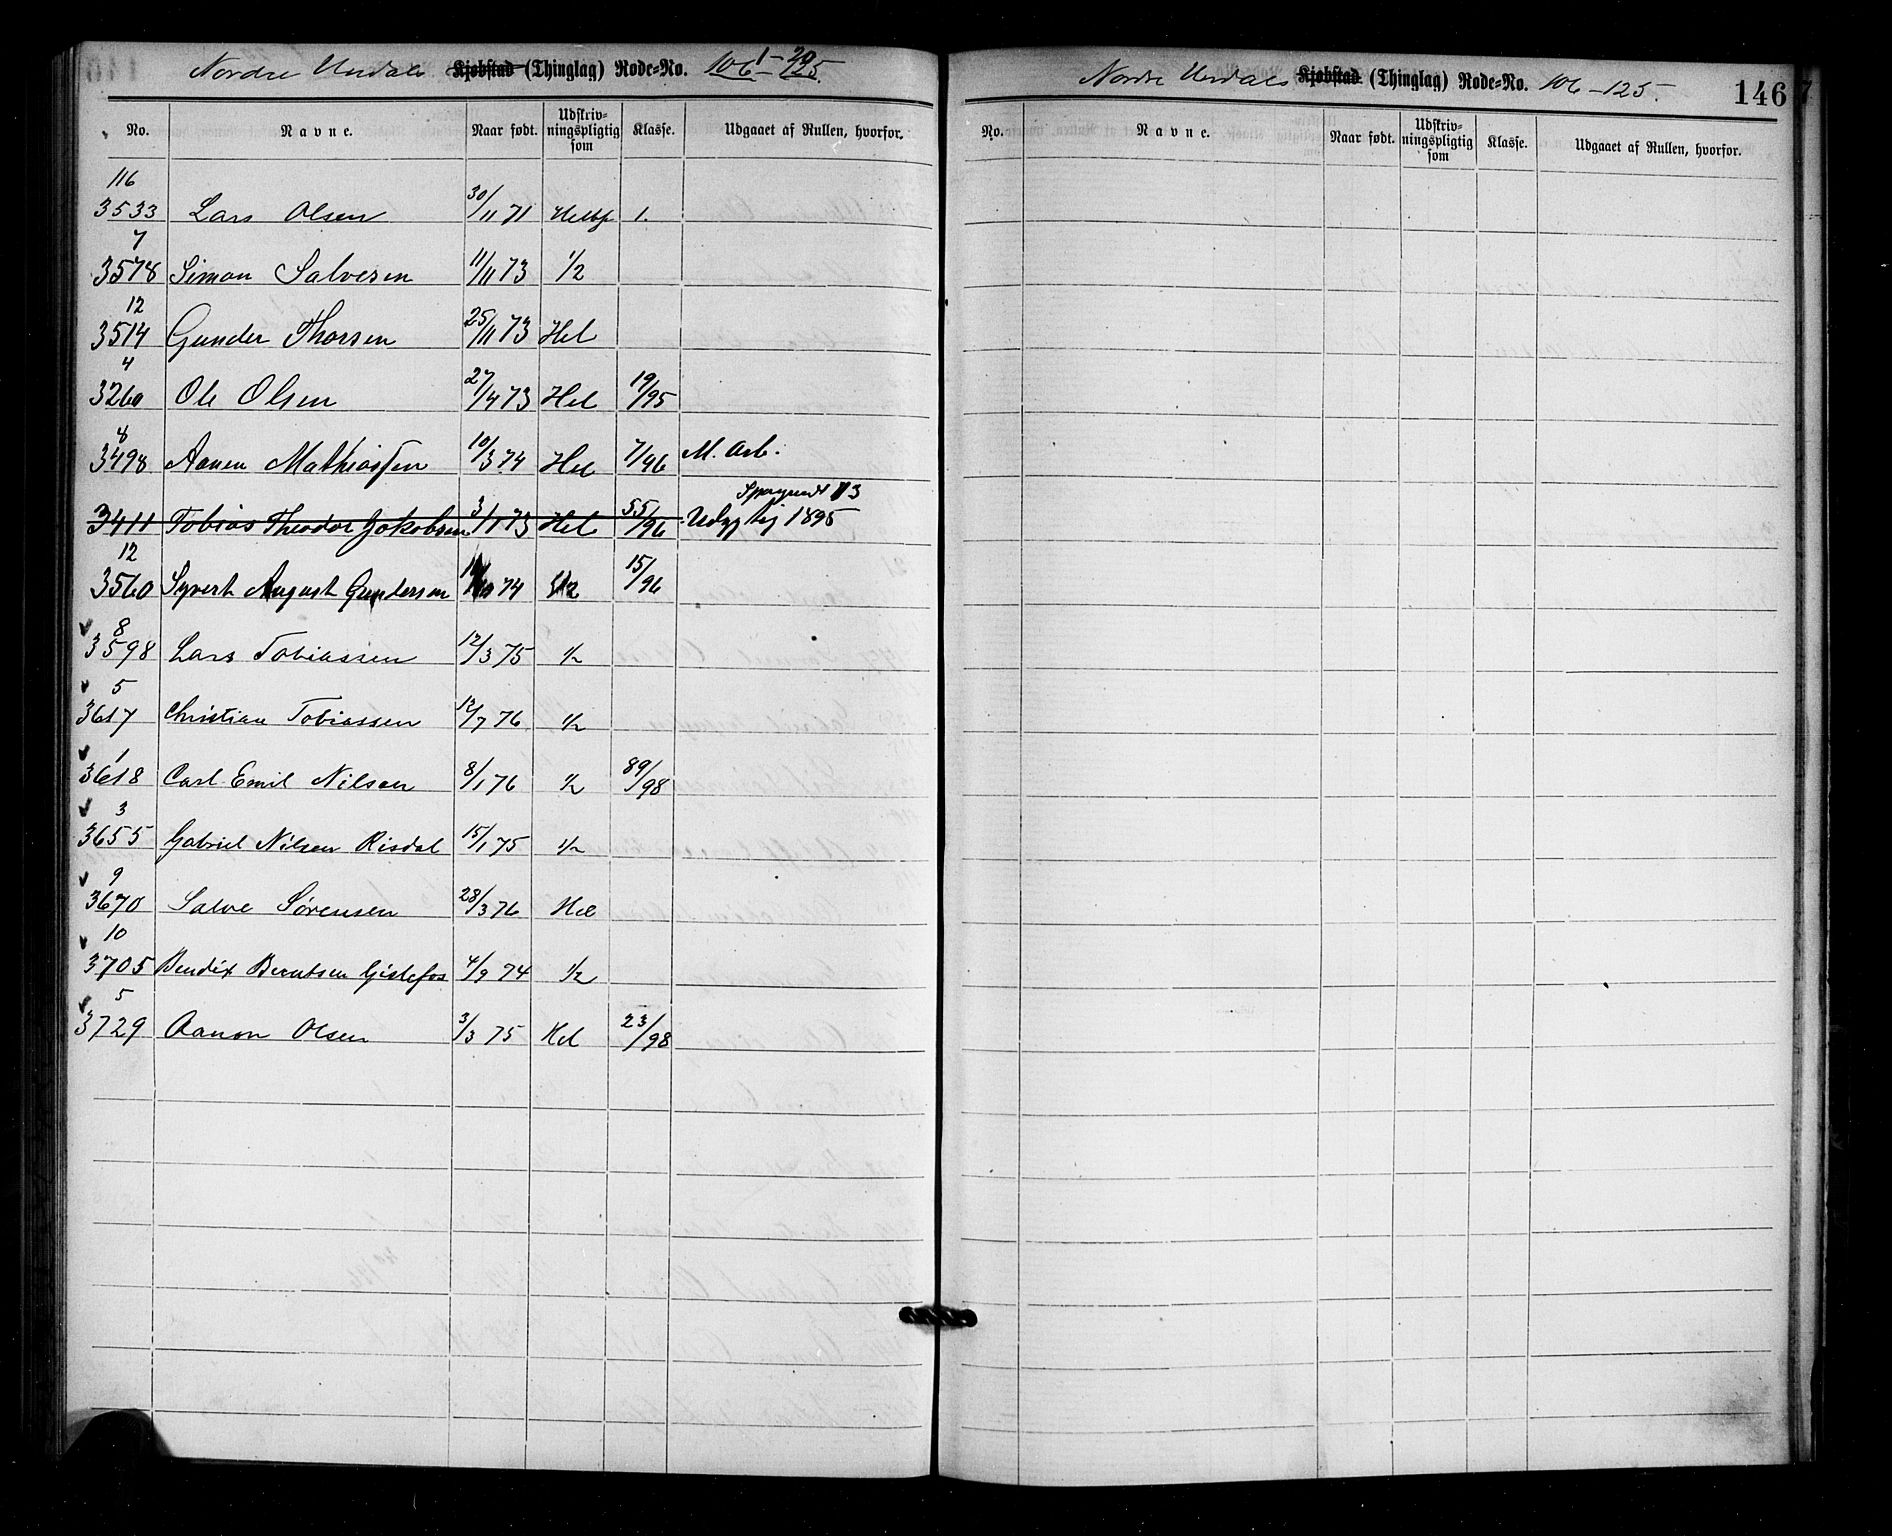 Nordre Undals Kjøbstad (Thinglag) Rode-No. 106-125. 1-20
No. Navne. Naar født. Udskriv-ningspligtig som Klasse. Udgaaet af Rullen, hvorfor.
116
3533 Lars Olsen 30/11 71 1.
7
3578 Simon Salvesen 11/11 73 1/2
12
3514 Gunder Thorsen 25/11 73 Hel
4
3260 Ole Olsen 27/4 73 Hel 19/95
8
3498 Aanen Mathiassen 10/3 74 Hel 7/96 M. Arb.
13
3411 Tobias Theodor Jakobsen 3/1 73 Hel 55/96 1895
12
3560 Syvert August Gundersen 74 1/2 15/96
8
3598 Lars Tobiassen 12/3 75 1/2
5
3617 Christian Tobiassen 12/7 76 1/2
1
3618 Carl Emil Nilsen 8/1 76 1/2 89/98
3
3655 Gabriel Nilsen Risdal 15/1 75 1/2
9
3670 Salve Sørensen 28/3 76 Hel
10
3705 Bendix Berntsen Gistefos 4/9 74 1/2
5
3729 Aanon Olsen 3/3 75 Hel 23/98
Nordre Undals Kjøbstad (Thinglag) Rode-No. 106-125. 146
No. Navne. Naar født. Udskriv-ningspligtig som Klasse. Udgaaet af Rullen, hvorfor.